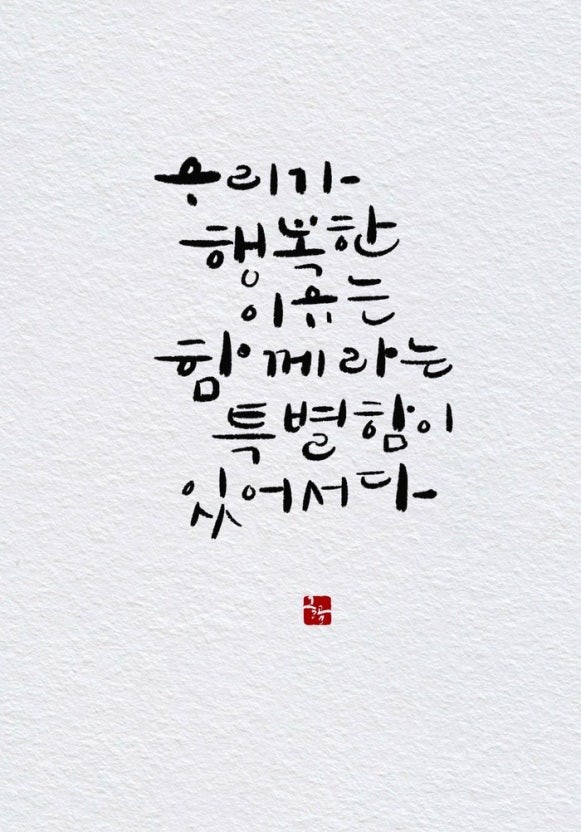 우리가
행복한
이유는
함께라는
특별함이
있어서다